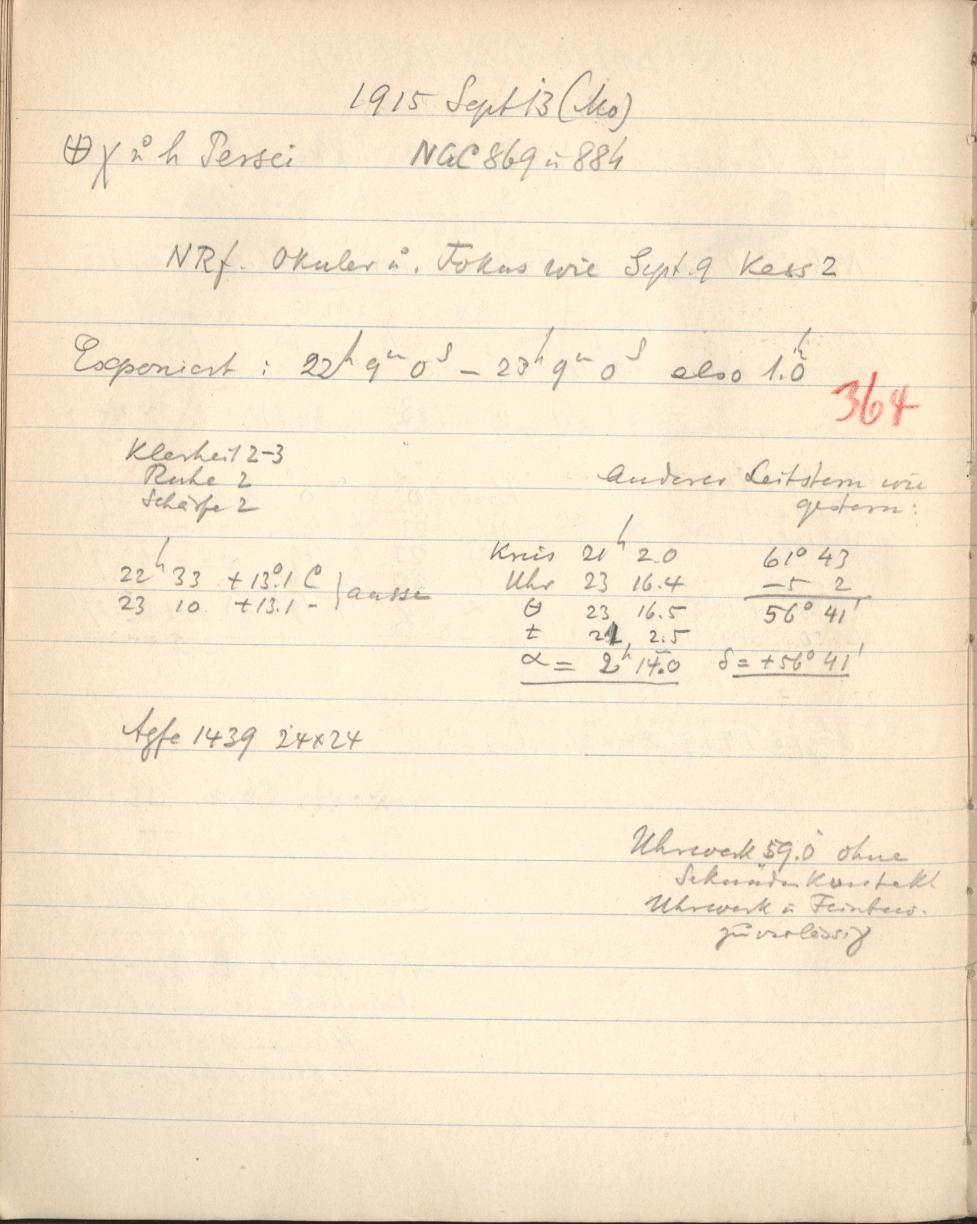 1915 Sept 13 (Mo)
⊕ χ u h Persei NGC 869 u 884
NRf. Okular u. Fokus wie Sept. 9 Kass 2
Exponiert : 22h 9m 0s – 23h 9m 0s also 1.0h
364
Klarheit 2–3
Ruhe 2
Schärfe 2
anderer Leitstern wie
gestern:
Kreis 21h 2.0 61° 43
Uhr 23 16.4 –5 2
θ 23 16.5 56° 41'
t 21 2.5
α = 2h 14.0 δ = +56° 41'
22h 33 +13°.1 C
23 10 +13.1 -
} aussen
Agfa 1439 24x24
Uhrwerk 59.0 ohne
Sekundenkontakt
Uhrwerk u Feinbew.
zuverlässig